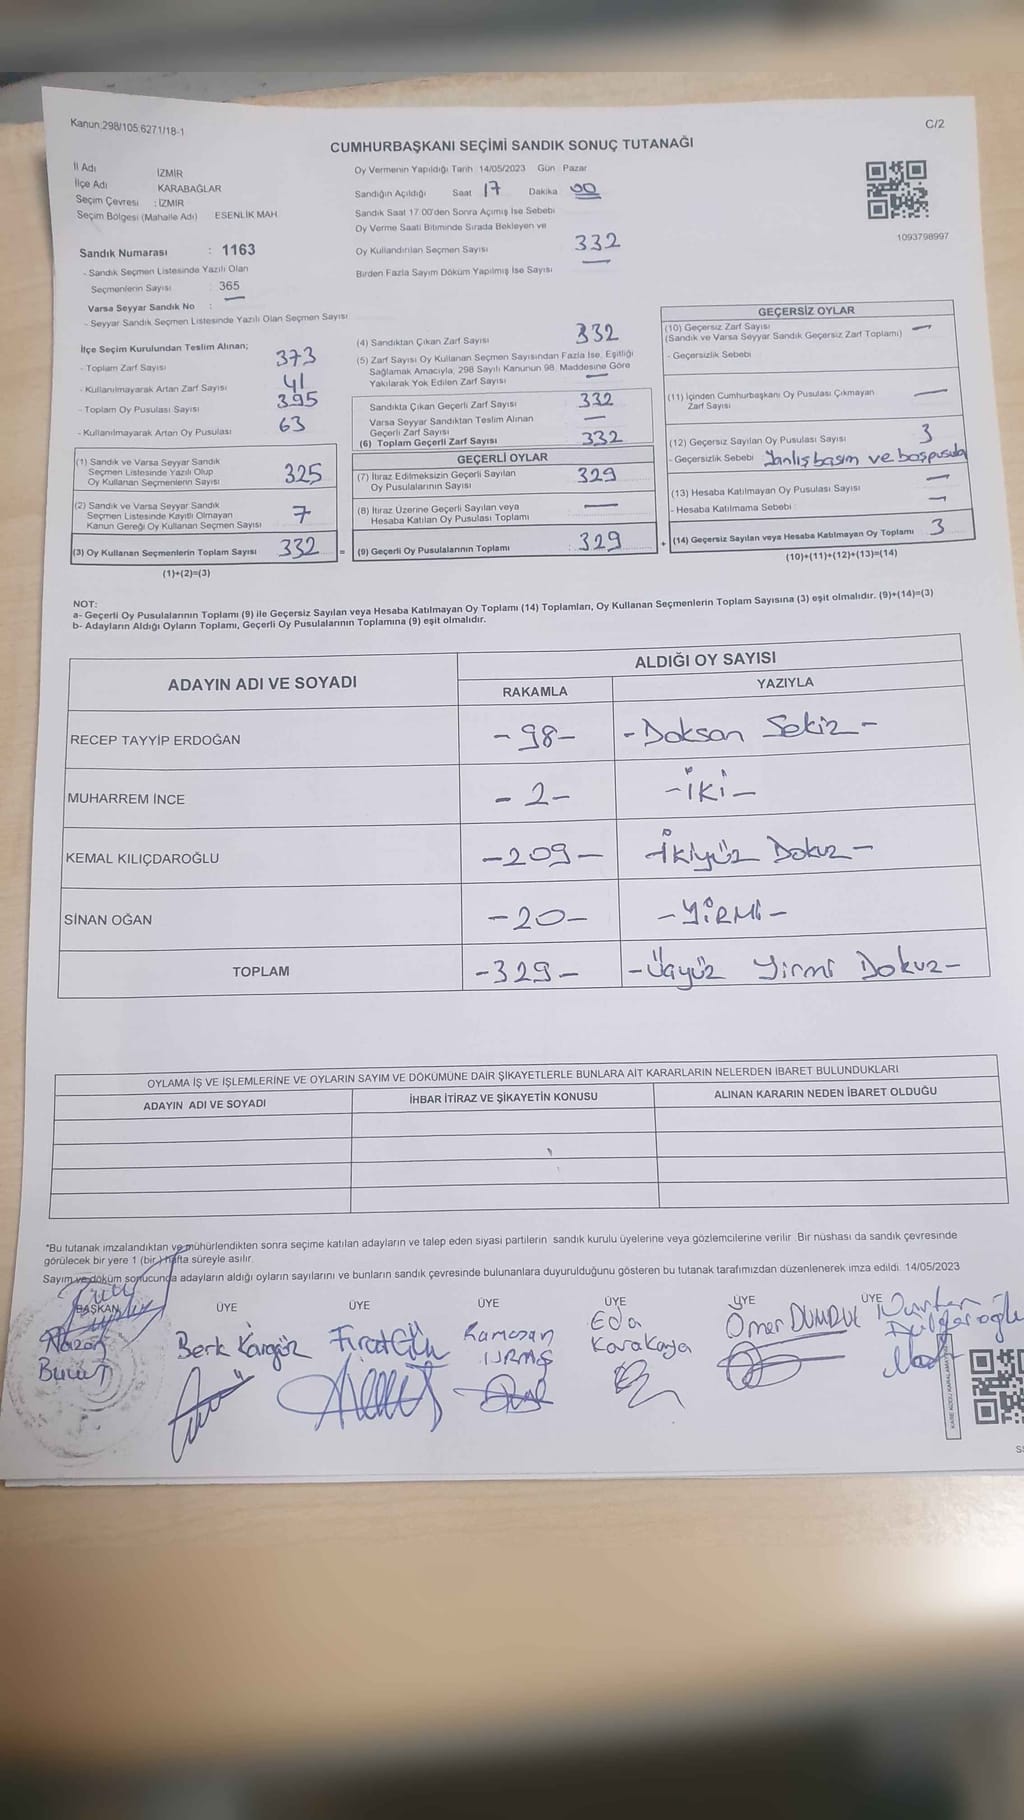 Kanun;298/105 6271/18-1
C/2
CUMHURBAŞKANI SEÇİMİ SANDIK SONUÇ TUTANAĞI
İl Adı İZMİR
İlçe Adı KARABAĞLAR
Seçim Çevresi : İZMİR
Seçim Bölgesi (Mahalle Adı) ESENLİK MAH.
Oy Vermenin Yapıldığı Tarih 14/05/2023 Gün Pazar
Sandığın Açıldığı Saat 17 Dakika 00
Sandık Saat 17:00'den Sonra Açımış İse Sebebi
Oy Verme Saati Bitiminde Sırada Bekleyen ve
Oy Kullandırılan Seçmen Sayısı 332
Birden Fazla Sayım Döküm Yapılmış İse Sayısı
1093798997
Sandık Numarası : 1163
- Sandık Seçmen Listesinde Yazılı Olan
Seçmenlerin Sayısı : 365
Varsa Seyyar Sandık No :
- Seyyar Sandık Seçmen Listesinde Yazılı Olan Seçmen Sayısı
İlçe Seçim Kurulundan Teslim Alınan;
- Toplam Zarf Sayısı 373
- Kullanılmayarak Artan Zarf Sayısı 41
- Toplam Oy Pusulası Sayısı 395
- Kullanılmayarak Artan Oy Pusulası 63
(1) Sandık ve Varsa Seyyar Sandık
Seçmen Listesinde Yazılı Olup
Oy Kullanan Seçmenlerin Sayısı 325
(2) Sandık ve Varsa Seyyar Sandık
Seçmen Listesinde Kayıtlı Olmayan
Kanun Gereği Oy Kullanan Seçmen Sayısı 7
(3) Oy Kullanan Seçmenlerin Toplam Sayısı 332 =
(1)+(2)=(3)
(4) Sandıktan Çıkan Zarf Sayısı 332
(5) Zarf Sayısı Oy Kullanan Seçmen Sayısından Fazla İse, Eşitliği
Sağlamak Amacıyla, 298 Sayılı Kanunun 98. Maddesine Göre
Yakılarak Yok Edilen Zarf Sayısı —
Sandıkta Çıkan Geçerli Zarf Sayısı 332
Varsa Seyyar Sandıktan Teslim Alınan
Geçerli Zarf Sayısı —
(6) Toplam Geçerli Zarf Sayısı 332
GEÇERLİ OYLAR
(7) İtiraz Edilmeksizin Geçerli Sayılan
Oy Pusulalarının Sayısı 329
(8) İtiraz Üzerine Geçerli Sayılan veya
Hesaba Katılan Oy Pusulası Toplamı —
(9) Geçerli Oy Pusulalarının Toplamı 329 +
GEÇERSİZ OYLAR
(10) Geçersiz Zarf Sayısı —
(Sandık ve Varsa Seyyar Sandık Geçersiz Zarf Toplamı)
- Geçersizlik Sebebi
(11) İçinden Cumhurbaşkanı Oy Pusulası Çıkmayan
Zarf Sayısı —
(12) Geçersiz Sayılan Oy Pusulası Sayısı 3
- Geçersizlik Sebebi Yanlış basım ve boş pusula
(13) Hesaba Katılmayan Oy Pusulası Sayısı —
- Hesaba Katılmama Sebebi —
(14) Geçersiz Sayılan veya Hesaba Katılmayan Oy Toplamı 3
(10)+(11)+(12)+(13)=(14)
NOT:
a- Geçerli Oy Pusulalarının Toplamı (9) ile Geçersiz Sayılan veya Hesaba Katılmayan Oy Toplamı (14) Toplamları, Oy Kullanan Seçmenlerin Toplam Sayısına (3) eşit olmalıdır. (9)+(14)=(3)
b- Adayların Aldığı Oyların Toplamı, Geçerli Oy Pusulalarının Toplamına (9) eşit olmalıdır.
ADAYIN ADI VE SOYADI
ALDIĞI OY SAYISI
RAKAMLA YAZIYLA
RECEP TAYYİP ERDOĞAN -98- -Doksan Sekiz-
MUHARREM İNCE -2- -İki-
KEMAL KILIÇDAROĞLU -209- -İkiyüz Dokuz-
SİNAN OĞAN -20- -YİRMİ-
TOPLAM -329- -Üçyüz Yirmi Dokuz-
OYLAMA İŞ VE İŞLEMLERİNE VE OYLARIN SAYIM VE DÖKÜMÜNE DAİR ŞİKAYETLERLE BUNLARA AİT KARARLARIN NELERDEN İBARET BULUNDUKLARI
ADAYIN ADI VE SOYADI
İHBAR İTİRAZ VE ŞİKAYETİN KONUSU
ALINAN KARARIN NEDEN İBARET OLDUĞU
*Bu tutanak imzalandıktan ve mühürlendikten sonra seçime katılan adayların ve talep eden siyasi partilerin sandık kurulu üyelerine veya gözlemcilerine verilir. Bir nüshası da sandık çevresinde
görülecek bir yere 1 (bir) hafta süreyle asılır.
Sayım ve döküm sonucunda adayların aldığı oyların sayılarını ve bunların sandık çevresinde bulunanlara duyurulduğunu gösteren bu tutanak tarafımızdan düzenlenerek imza edildi. 14/05/2023
BAŞKAN ÜYE ÜYE ÜYE ÜYE ÜYE ÜYE
Berk Kargöz
Ramazan
Eda
Karakaya
Ömer DUMDUK